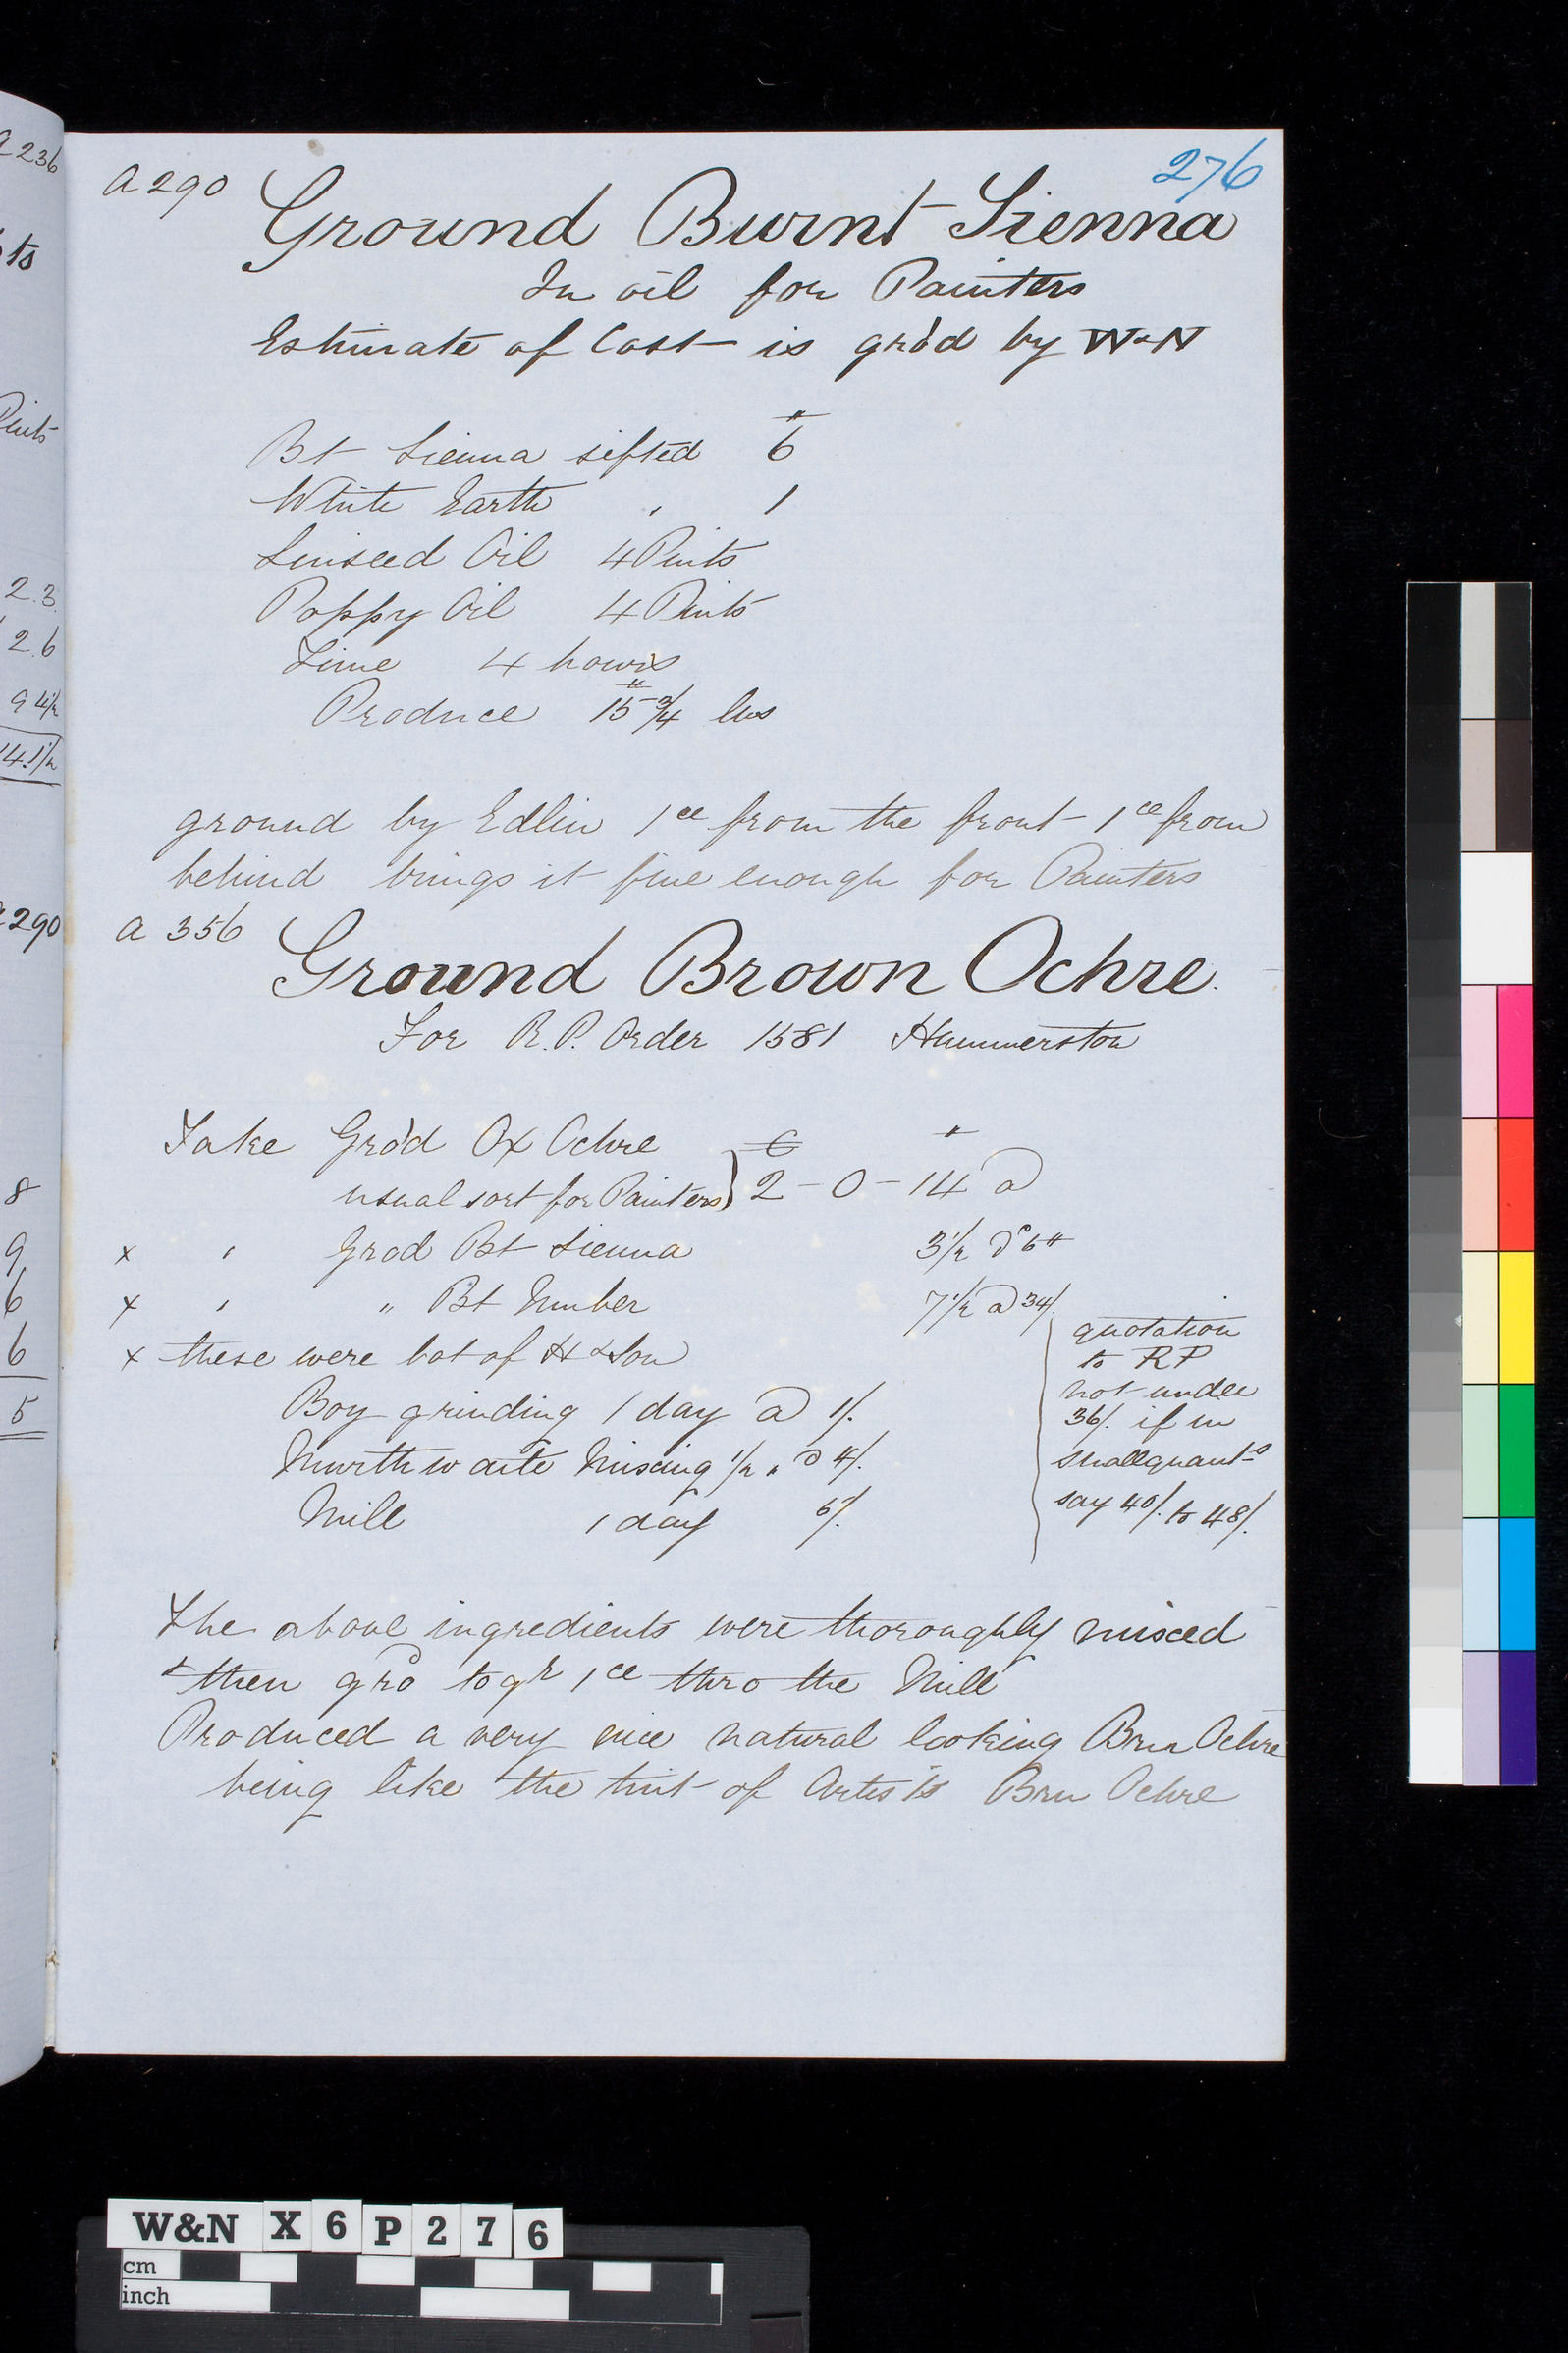 276
A 290
Ground Burnt Sienna
In oil for Painters
Estimate of Cost is gr'd by W&N
#
Bt Sienna sifted 6
White Earth , 1
Linseed Oil 4 Pints
Poppy Oil 4 Pints
Time 4 hours
Produce 15 3/4 lbs
ground by Edlin 1ce from the front 1ce from
behind brings it fine enough for Painters
A 356
Ground Brown Ochre.
For R.P. Order 1581 Hummerston
Take Gro'd Ox Ochre C #
usual sort for Painters } 2 - 0 - 14 @
x , Grod Bt Sienna 3 1/2 @ 6
x , " Bt Umber 7 1/2 @ 34/.
x these were bot of H & Son
Boy grinding 1 day @ 1/.
Murthwaite Mixing 1/2 " @ 4/.
Mill 1 day 6/.
quotation
to RP
not under
36/. if in
small quants
say 40/. to 48/.
The above ingredients were thoroughly mixed
& then gro'd togr 1ce thro the Mill
Produced a very nice natural looking Brn Ochre
being like the tint of Artists Brn Ochre
a 236
ts
Pints
2.3.
2.6
9 4 1/2
14.1 1/2
a 290
8
9
6
6
5
W&N X 6 P 2 7 6
cm
inch